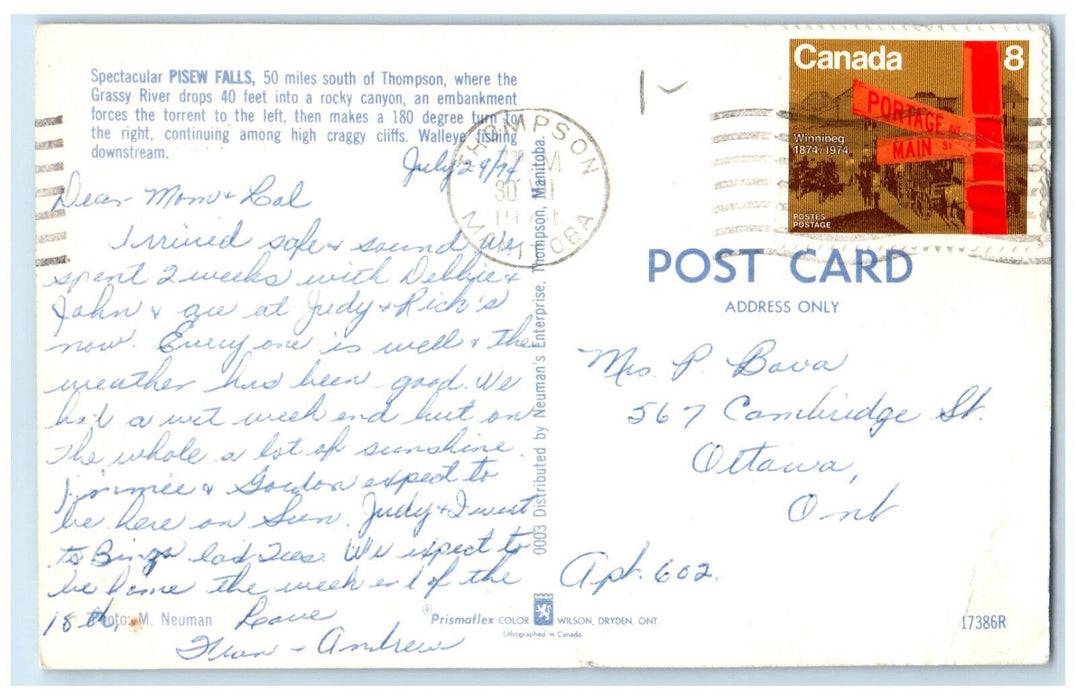 Spectacular PISEW FALLS, 50 miles south of Thompson, where the
Grassy River drops 40 feet into a rocky canyon, an embankment
forces the torrent to the left, then makes a 180 degree turn to
the right, continuing among high craggy cliffs. Walleye fishing
downstream.
July 29/74
Dear Mom & Cal
Arrived safe & sound. We
spent 2 weeks with Debbie &
John & are at Judy & Rick's
now. Everyone is well & the
weather has been good. We
had a wet week end but on
the whole a lot of sunshine.
Jimmie & Gordon expect to
be here on Sun. Judy & I went
to Bingo last Tues. We expect to
be home the week end of the
18th.
Love
Fran & Andrew
Photo: M. Neuman
0003 Distributed by Neuman's Enterprise, Thompson, Manitoba.
®Prismaflex COLOR WILSON, DRYDEN, ONT.
Lithographed in Canada
THOMPSON
30 VII
MANITOBA
Canada 8
PORTAGE AVE
MAIN ST
Winnipeg
1874-1974
POSTES
POSTAGE
POST CARD
ADDRESS ONLY
Mrs. P. Bova
567 Cambridge St.
Ottawa,
Ont
Apt. 602.
17386R